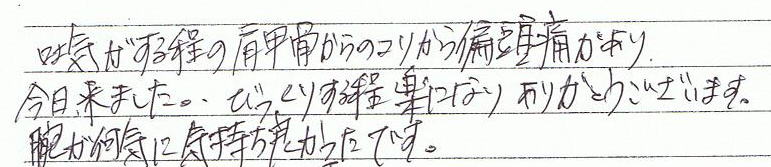 吐気がする程の肩甲骨からのコリから偏頭痛があり
今日来ました。びっくりする程楽になりありがとうございます。
腕が何気に気持ち良かったです。